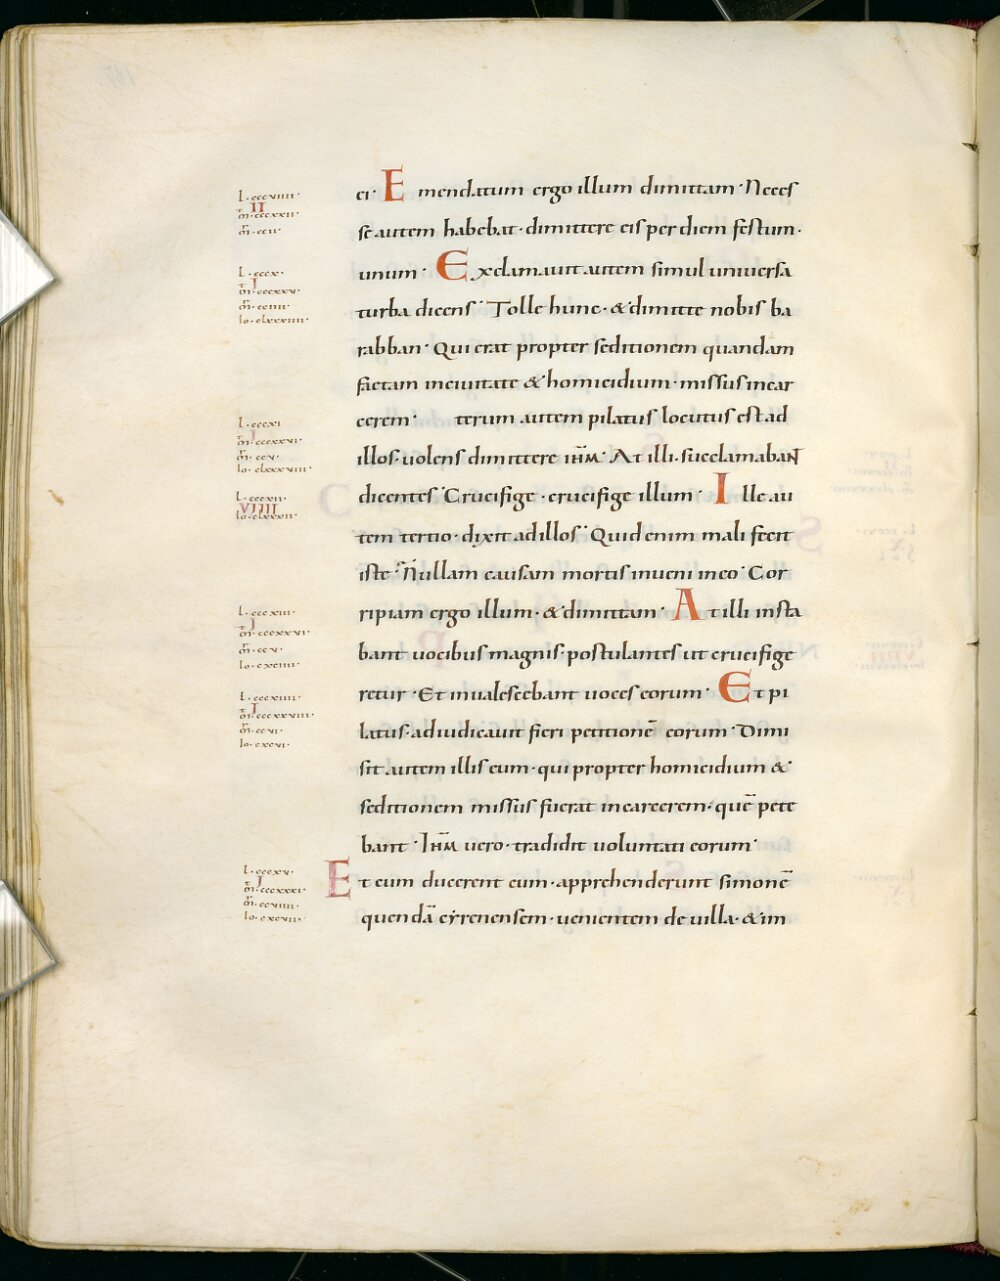 ei· Emendatum ergo illum dimittam· Neces
se autem habebat· dimittere eis per diem festum·
unum· Exclamavit autem simul universa
turba dicens· Tolle hunc· & dimitte nobis ba
rabban· Qui erat propter seditionem quandam
factam incivitate & homicidium· missus incar
cerem· terum autem pilatus locutus est ad
illos· volens dimittere ihm· At illi· succlamabant
dicentes· Crucifige· crucifige illum· Ille au
tem tertio· dixit ad illos· Quid enim mali fecit
iste· Nullam causam mortis inveni ineo· Cor
ripiam ergo illum· & dimittam· At illi insta
bant vocibus magnis· postulantes ut crucifige
retur· Et invalescebant voces eorum· Et pi
latus· adiudicavit fieri petitionē eorum· Dimi
sit autem illis eum· qui propter homicidium &
seditionem missus fuerat incarcerem· quē pete
bant· Ihm vero· tradidit voluntati eorum·
Et cum ducerent eum· apprehenderunt simonē
quendā cyrenensem· venientem de villa· & im
L·cccviiii·
II
m̄·cccxxii·
m̄·ccii·
L·cccx·
I
m̄·cccxxv·
m̄·cciiii·
Io·clxxxiiii·
L·cccxi
I
m̄·cccxxvi·
m̄·ccv·
Io·clxxxviii·
L·cccxii·
VIIII
Io·clxxxii·
L·cccxiii·
I
m̄·cccxxvi·
m̄·ccv·
Io·cxciiii·
L·cccxiiii·
I
m̄·cccxxviii·
m̄·ccvi·
Io·cxcvi·
L·cccxv·
I
m̄·cccxxxi·
m̄·ccviiii·
Io·cxcvii·